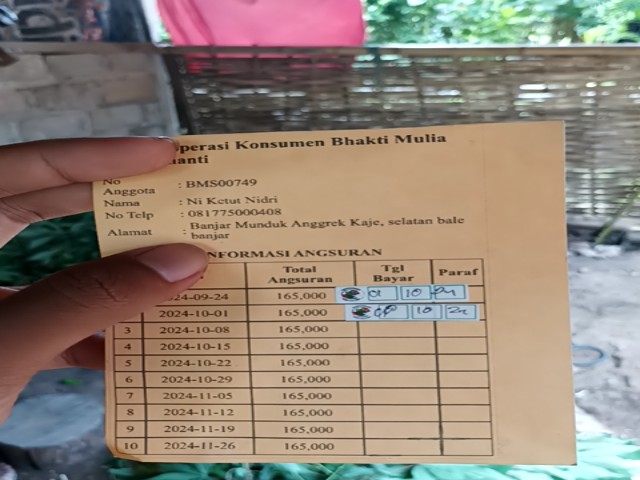 operasi Konsumen Bhakti Mulia
anti
No Anggota : BMS00749
Nama : Ni Ketut Nidri
No Telp : 081775000408
Alamat : Banjar Munduk Anggrek Kaje, selatan bale
banjar
INFORMASI ANGSURAN
Total Angsuran Tgl Bayar Paraf
24-09-24 165,000 10
2024-10-01 165,000 10
3 2024-10-08 165,000
4 2024-10-15 165,000
5 2024-10-22 165,000
6 2024-10-29 165,000
7 2024-11-05 165,000
8 2024-11-12 165,000
9 2024-11-19 165,000
10 2024-11-26 165,000